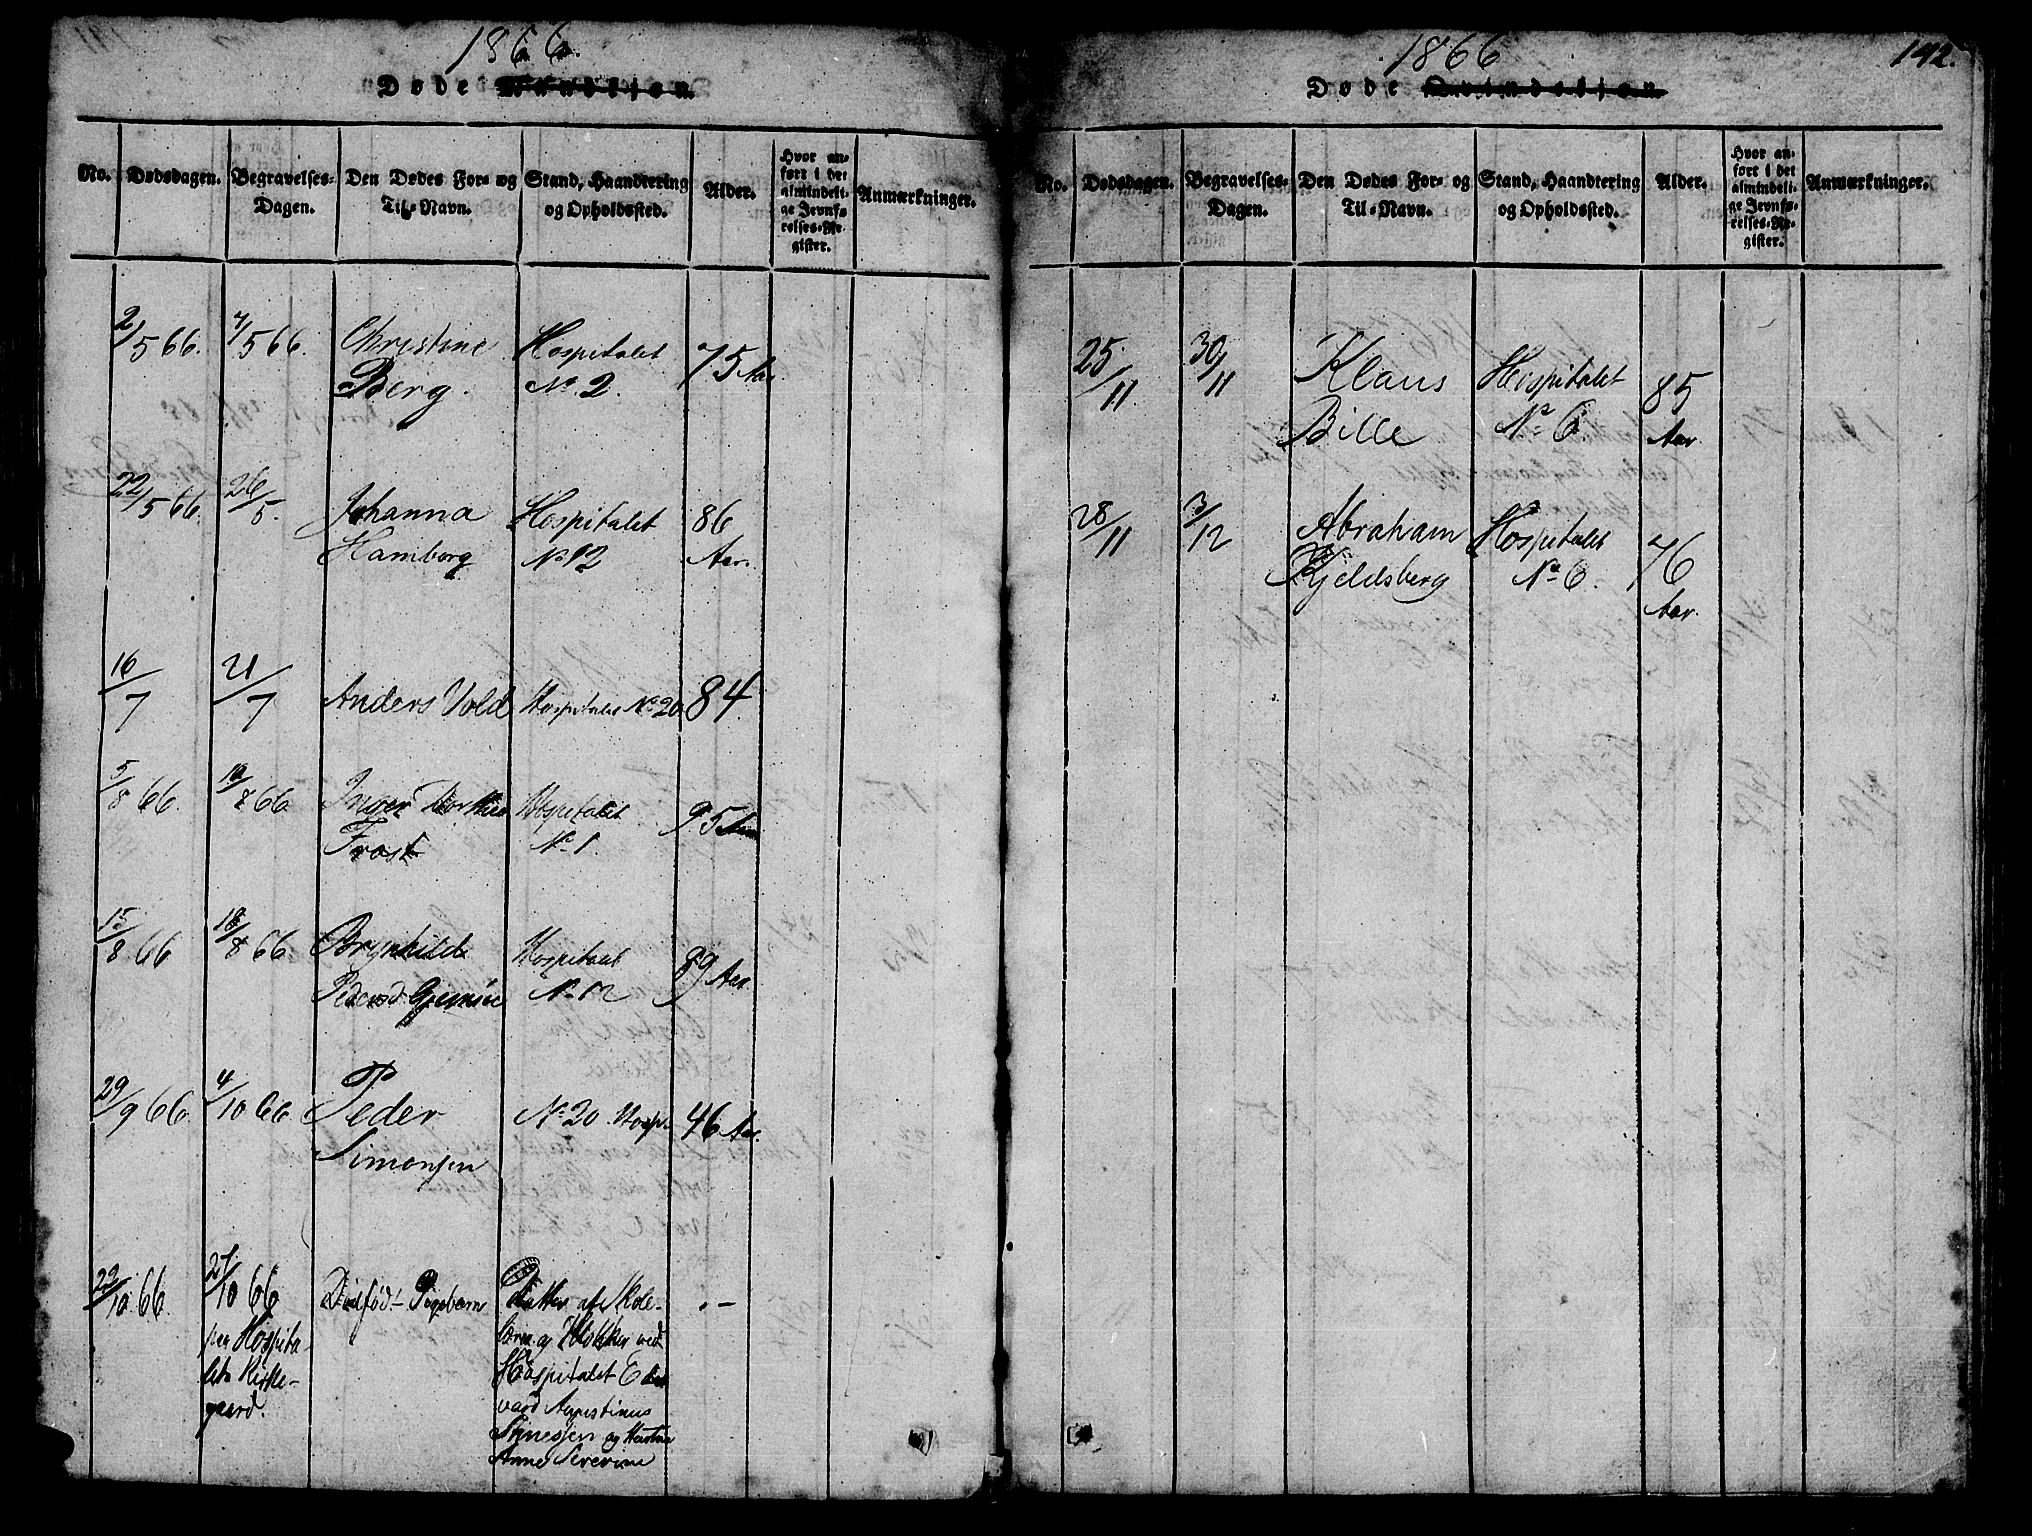 1866.
Døde Mandkjøn.
No.
Dødsdagen.
Begravelses-
Dagen.
Den Dødes For- og
Til-Navn.
Stand, Haandtering
og Opholdssted.
Alder.
Hvor an-
ført i det
almindeli-
ge Jevnfø-
relses-Re-
gister.
Anmærkninger.
2/5 66. 7/5 66. Christine Hospitalet 75 Aar
Berg. No. 2.
22/5 66. 26/5. Johanna Hospitalet 86
Hamborg No 12 Aar.
16/7 21/7 Anders Vold Hospitalet No 20 84.
5/8 66. 10/8 66 Inger Dorthea Hospitalet 95 Aar
Frost No 1.
15/8 66 18/8 66 Brynhilde Hospitalet 89 Aar
Pedersd. No 12
29/9 66. 4/10 66 Peder No 20 Hosp. 46 Aar.
Simonsen
22/10 66. 27/10 66 Dødfød Pigebarn Datter af Skole- . –
paa Hospita- lærer og Klokker ved
lets Kirke- Hospitalet Ed-
gaard. vard Augustinus
og Hustru
Anne Severine
1866
142.
Døde Qvindekjøn.
No.
Dødsdagen.
Begravelses-
Dagen.
Den Dødes For- og
Til-Navn.
Stand, Haandtering
og Opholdssted.
Alder.
Hvor an-
ført i det
almindeli-
ge Jevnfø-
relses-Re-
gister.
Anmærkninger.
25/11. 30/11 Klaus Hospitalet 85
Bille No 6. Aar
28/11 3/12 Abraham Hospitalet 76
Kjeldsberg No 6. Aar.